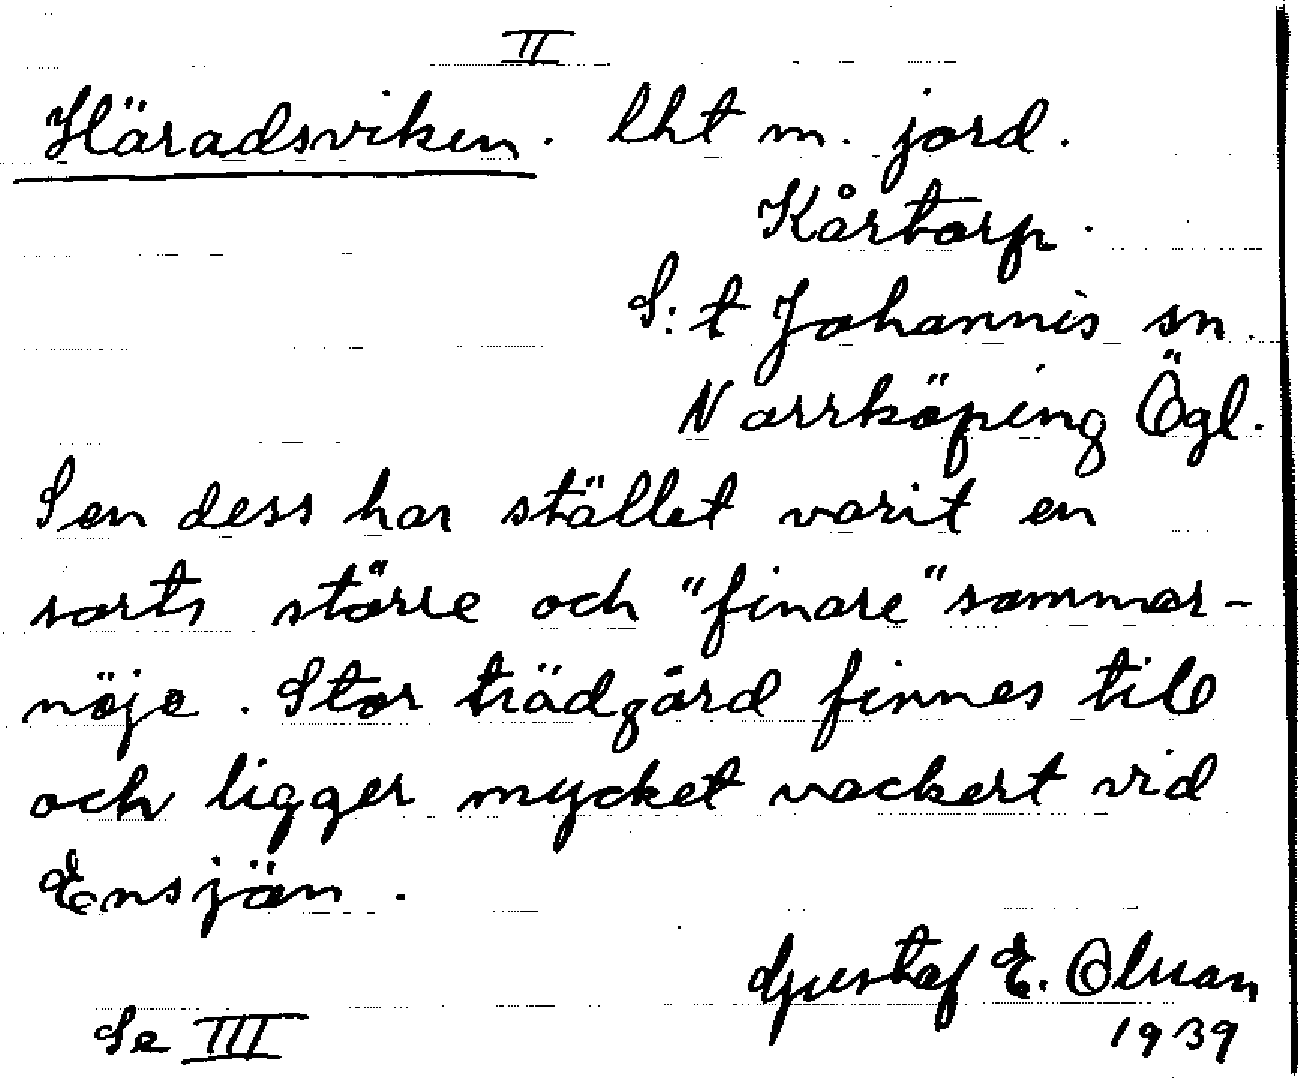 II
Häradsviken. lht m. jord.
Kårtorp.
S:t Johannis sn.
Norrköping Ögl.
Sen dess har stället varit en
sorts större och "finare" sommar-
nöje. Stor trädgård finnes till
och ligger mycket vackert vid
Ensjön.
Gustaf E. Olsson
1939
Se III